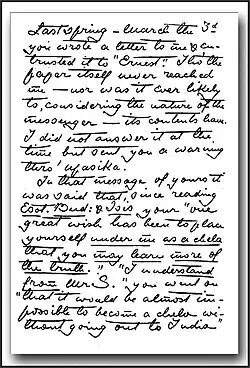 Last spring — March the 3d
you wrote a letter to me & en-
trusted it to "Ernest". Tho' the
paper itself never reached
me — nor was it ever likely
to, considering the nature of the
messenger — its contents have.
I did not answer it at the
time but sent you a warning
thro' Upasika.
In that message of yours it
was said that, since reading
Esot. Bud: & Isis your "one
great wish has been to place
yourself under me as a chela
that you may learn more of
the truth." "I understand
from Mr S." you went on
"that it would be almost im-
possible to become a chela wi-
thout going out to India"